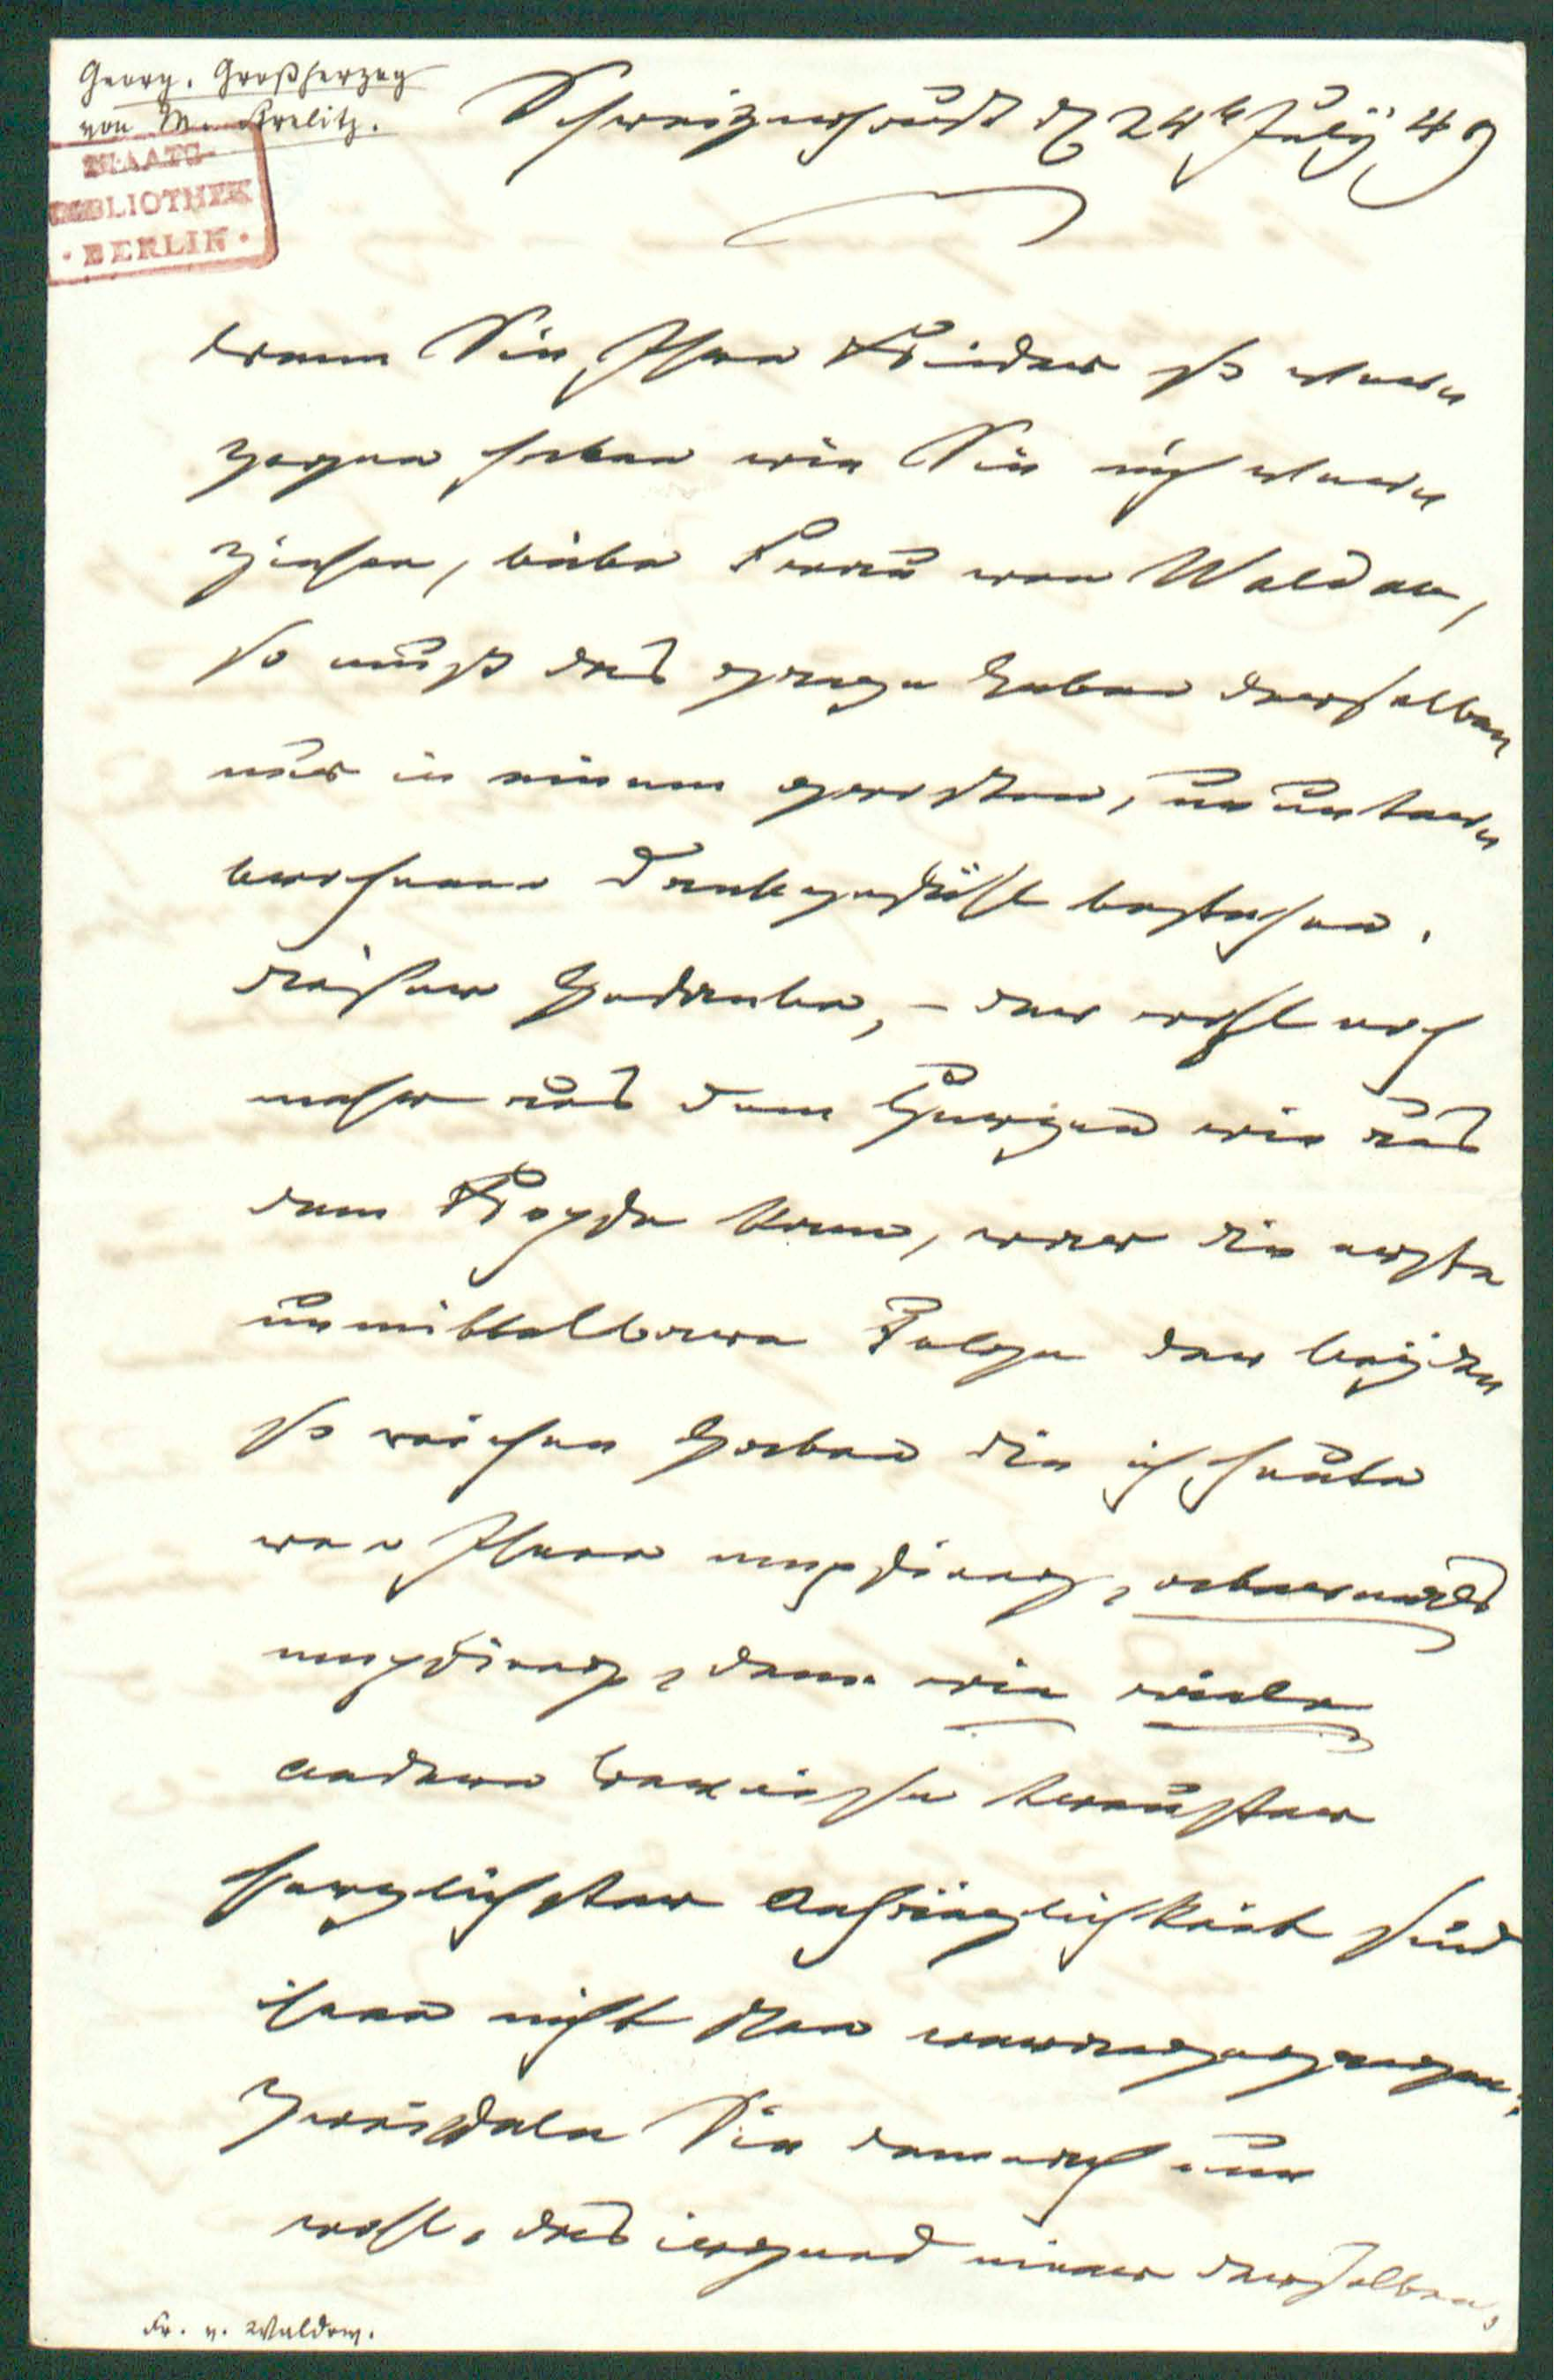 Georg. Großherzog
von M. Strelitz.
STAATS-
BIBLIOTHEK
· BERLIN ·
Schweizerhaus d 24t July 49
Wenn Sie Ihre Kinder so er
zogen haben wie Sie mich er
ziehen, liebe Frau von Waldow,
so muß das ganze Leben derselben
nur in einem großen, ununter
brochenen Dankgefühl bestehen.
Dieser Gedanke, – der wohl noch
mehr aus dem Herzen wie aus
dem Kopfe kam, war die erste
unmittelbare Folge der beyden
so reichen Gaben die ich heute
von Ihnen empfing, abermals
empfing, denn wie viele
andere Beweise treuster
herzlichster Anhänglichkeit sind
ihnen nicht schon vorangegangen;
Zweifeln Sie demnach nur
wohl, das irgend einer derselben,
Fr. v. Waldow.